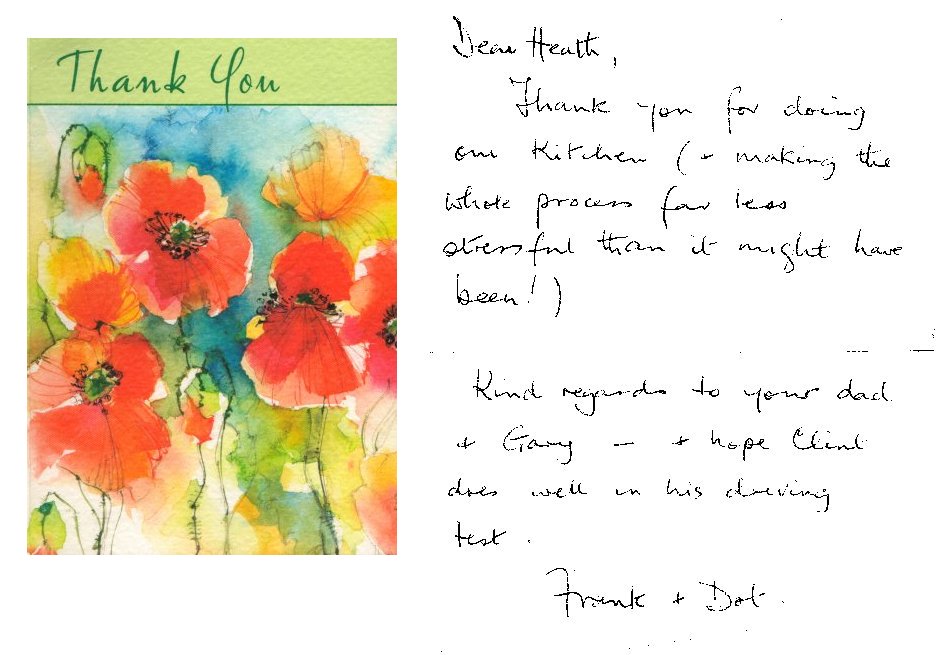 Thank You
Dear Heath,
Thank you for doing
our kitchen (+ making the
whole process far less
stressful than it might have
been!)
Kind regards to your dad
+ Gary – + hope Clint
does well in his driving
test.
Frank + Dot.